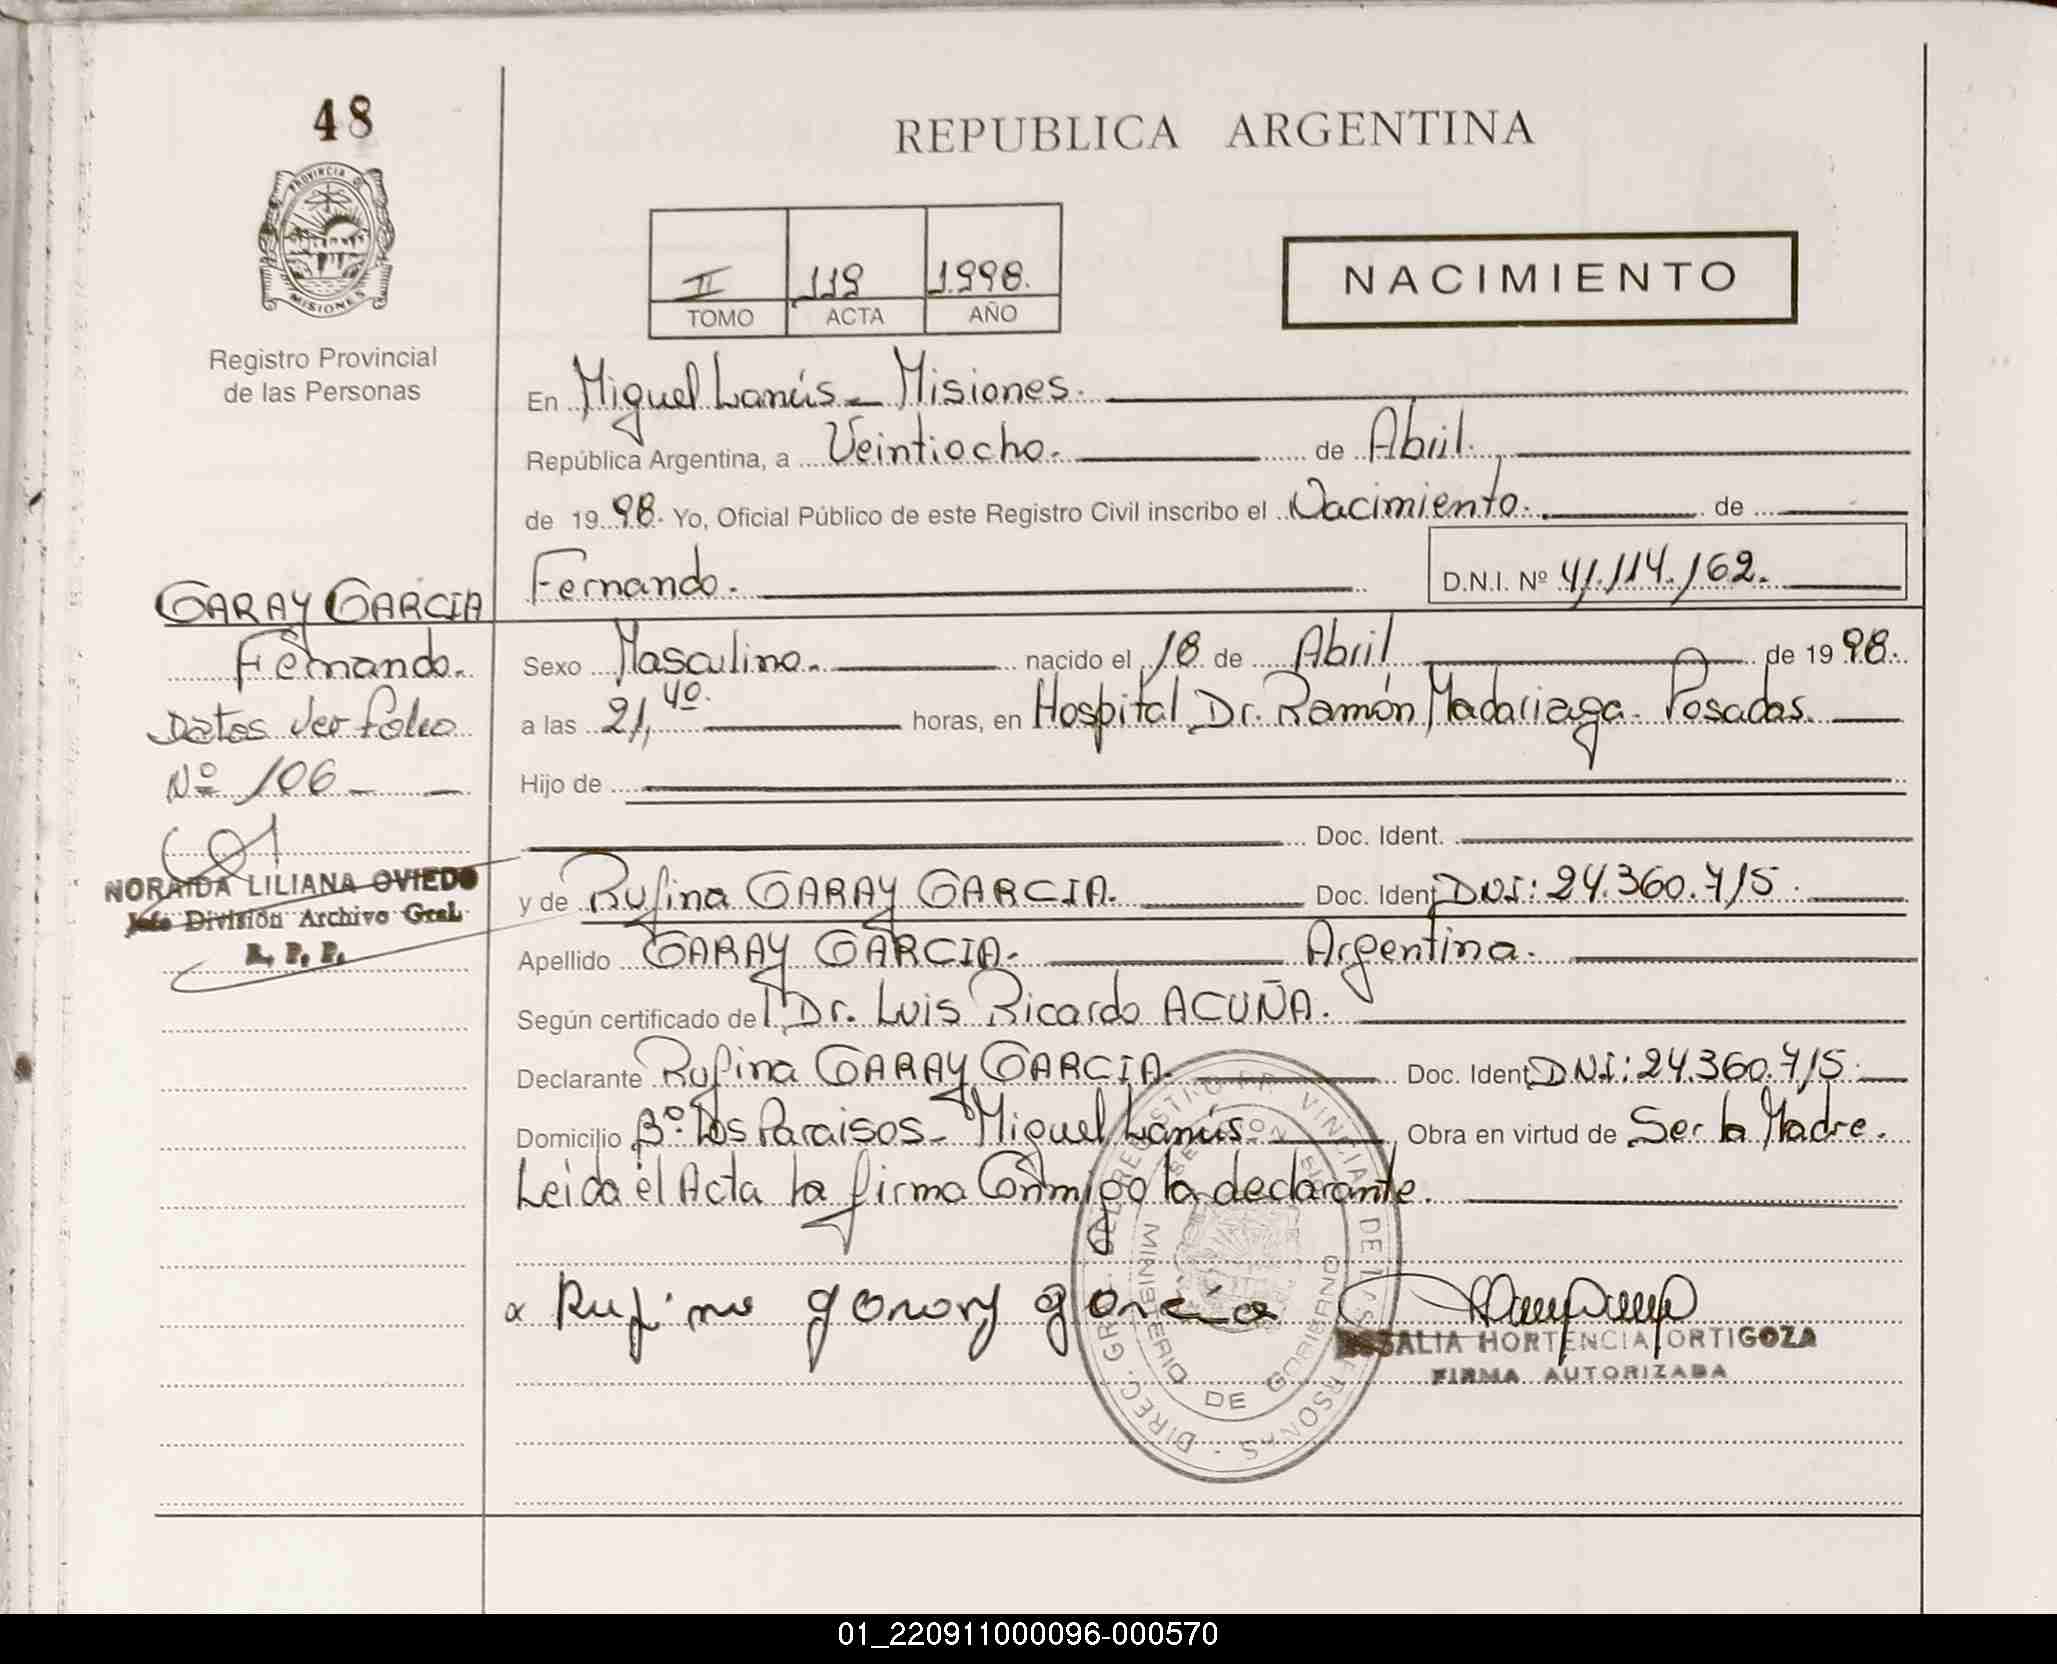 48
REPUBLICA ARGENTINA
PROVINCIA DE MISIONES
Registro Provincial
de las Personas
II 119 1998.
TOMO ACTA AÑO
NACIMIENTO
En Miguel Lanús - Misiones.
República Argentina, a Veintiocho. de Abril.
de 1998. Yo, Oficial Público de este Registro Civil inscribo el Nacimiento. de
Fernando. D.N.I. Nº 41.114.162.
GARAY GARCIA
Fernando.
Datos ver folio
Nº 106
NORAIDA LILIANA OVIEDO
Jefe División Archivo Gral.
R. P. P.
Sexo Masculino. nacido el 18 de Abril de 1998.
a las 21,40. horas, en Hospital Dr. Ramón Madariaga - Posadas.
Hijo de
Doc. Ident.
y de Rufina GARAY GARCIA. Doc. Ident DNI: 24.360.715.
Apellido GARAY GARCIA. Argentina.
Según certificado del Dr. Luis Ricardo ACUÑA.
Declarante Rufina GARAY GARCIA. Doc. Ident DNI: 24.360.715.
Domicilio Bº. Los Paraisos - Miguel Lanús. Obra en virtud de Ser la Madre.
Leida el Acta la firma Conmigo la declarante.
Rufina garay garcia
ROSALIA HORTENCIA ORTIGOZA
FIRMA AUTORIZADA
DIREC. GRAL. DEL REGISTRO PROVINCIAL DE LAS PERSONAS
MINISTERIO DE GOBIERNO
01_220911000096-000570